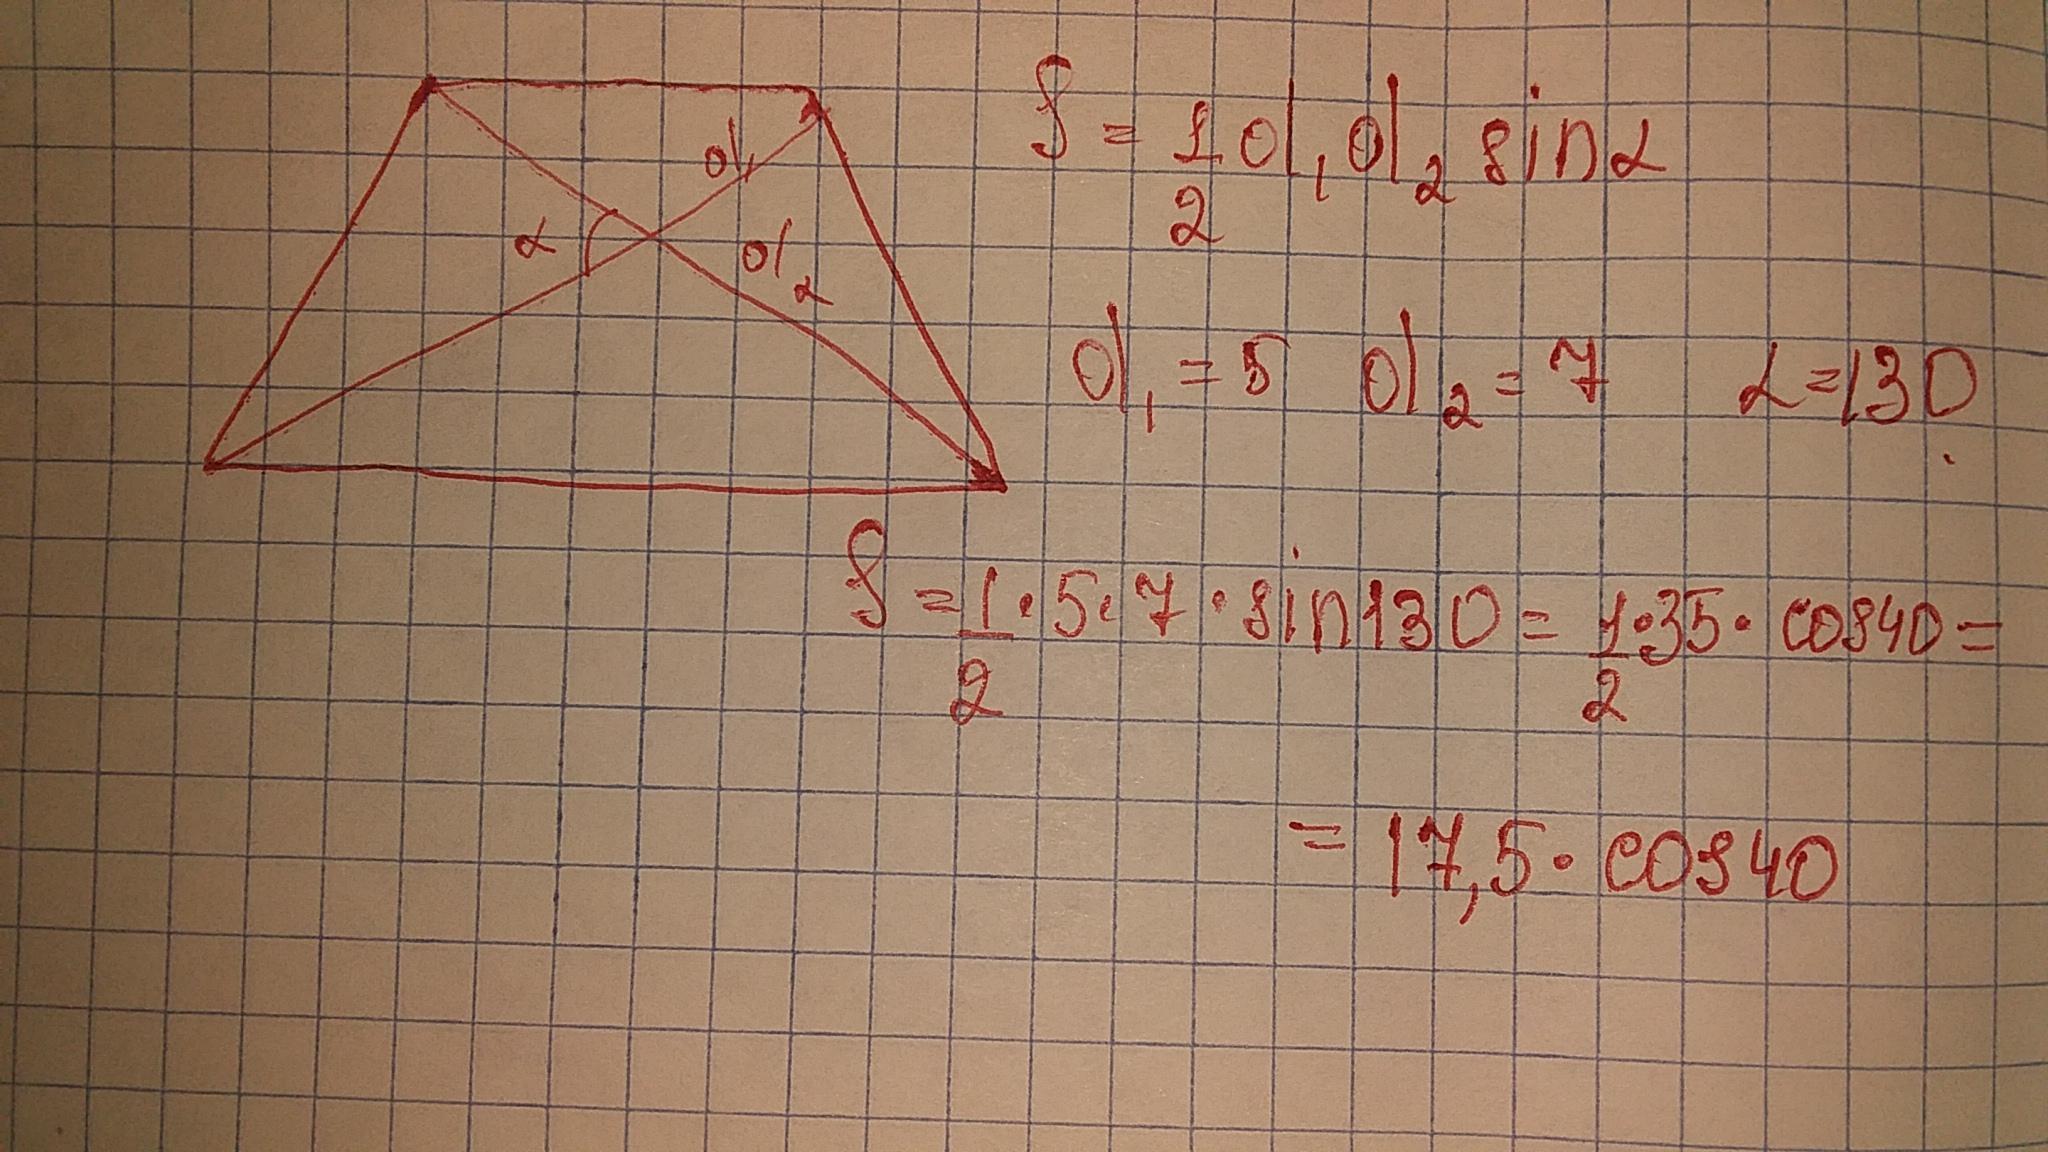 d₁
α
d₂
S = 1/2 d₁ d₂ sin α
d₁ = 5 d₂ = 7 α = 130
S = 1/2 · 5 · 7 · sin 130 = 1/2 · 35 · cos 40 =
= 17,5 · cos 40